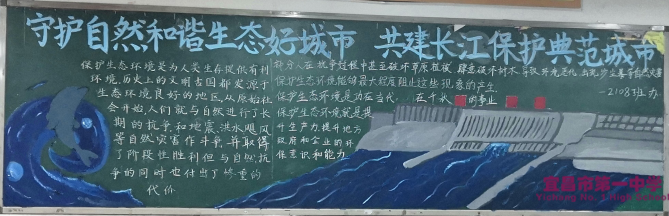 守护自然和谐生态好城市 共建长江保护典范城市
保护生态环境是为人类生存提供有利
环境,历史上的文明古国都发源于
生态环境良好的地区,从原始社
会开始人们就与自然进行了长
期的抗争和地震、洪水、飓风
等自然灾害作斗争,并取得
了阶段性胜利但与自然抗
争的同时也付出了惨重的
代价
部分人在抗争过程中甚至破坏草原植被,肆意破坏树木,导致环境恶化,出现沙尘暴等自然灾害
保护生态环境能够最大程度阻止这些现象的产生.
保护生态环境是功在当代 在千秋的事业
保护生态环境就是提
升生产力,提升地方
政府和企业的环
保意识和能力
—21083班办
宜昌市第一中学
Yichang No.1 High School